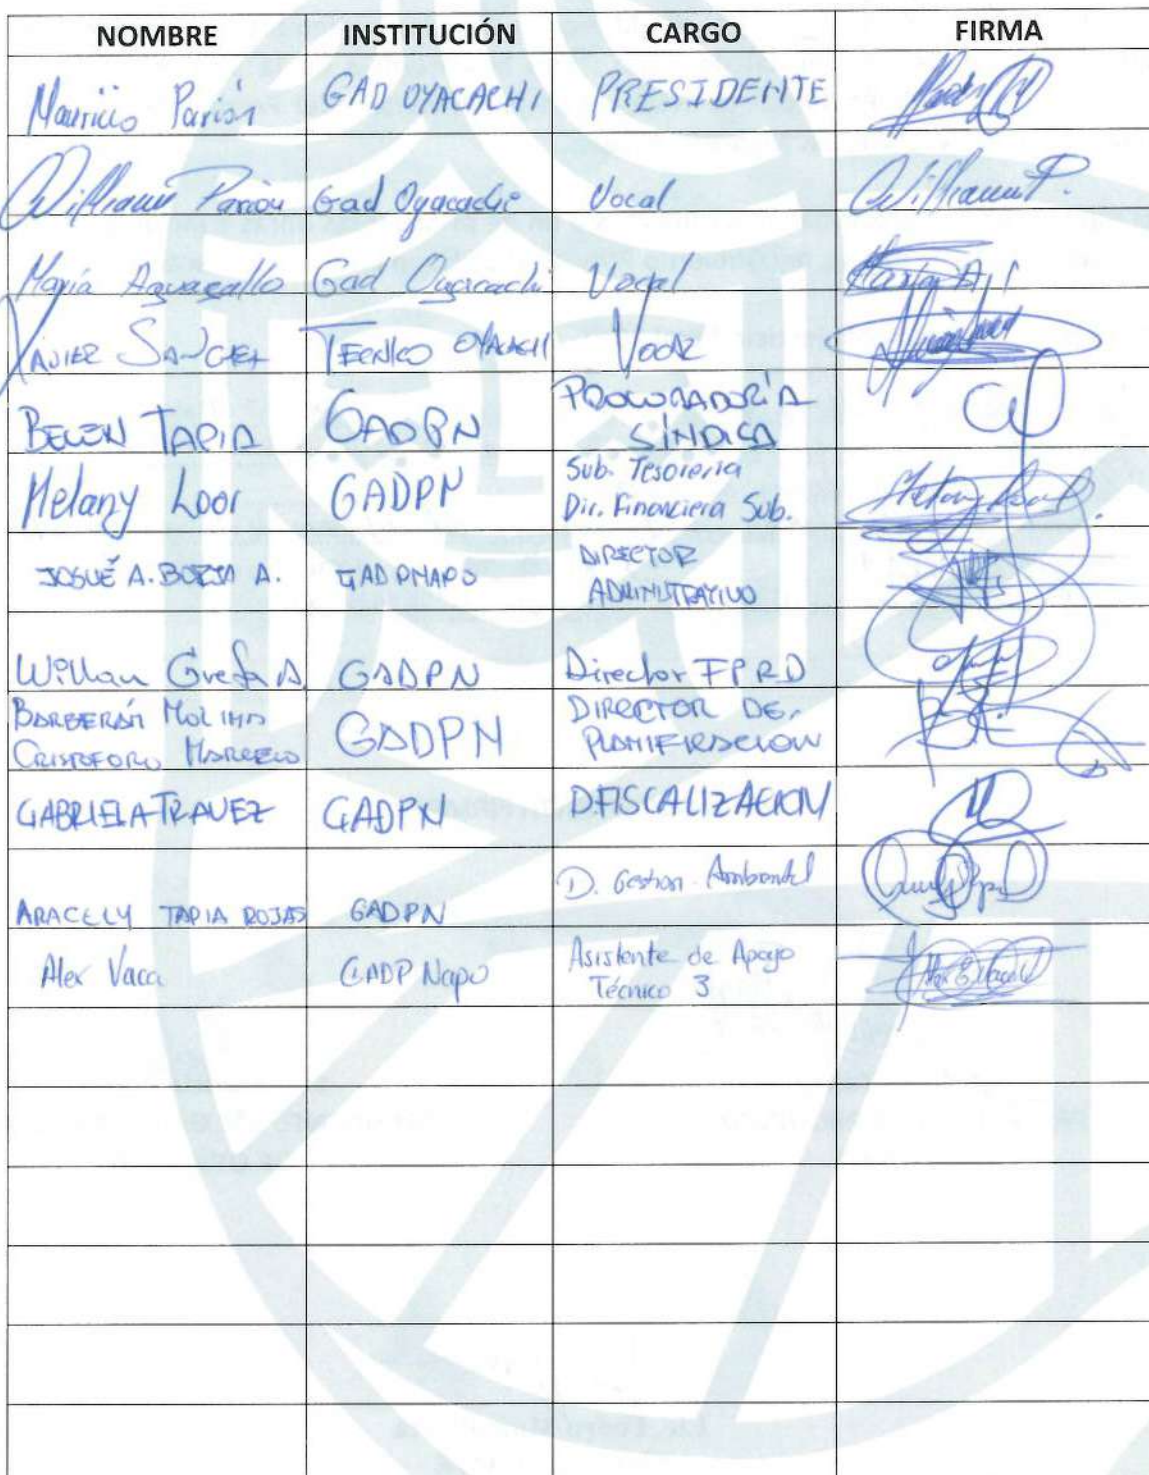 NOMBRE INSTITUCIÓN CARGO FIRMA
Mauricio Parión GAD OYACACHI PRESIDENTE
William Parión Gad Oyacachi Vocal William P.
María Aguagallo Gad Oyacachi Vocal
XAVIER SANCHEZ TECNICO OYACACHI
BELEN TAPIA GADPN PROCURADORÍA
SÍNDICA
Melany Loor GADPN Sub. Tesorería
Dir. Financiera Sub. Melany Loor
JOSUÉ A. BORJA A. GADPNAPO DIRECTOR
ADMINISTRATIVO
Willan Grefa A. GADPN Director FPRD
BARBERÁN MOLINA
CRISTOFORO MARCELO GADPN DIRECTOR DE
PLANIFICACION
GABRIELA TRAVEZ GADPN DFISCALIZACION
ARACELY TAPIA ROJAS GADPN D. Gestion Ambiental
Alex Vaca GADP Napo Asistente de Apoyo
Técnico 3